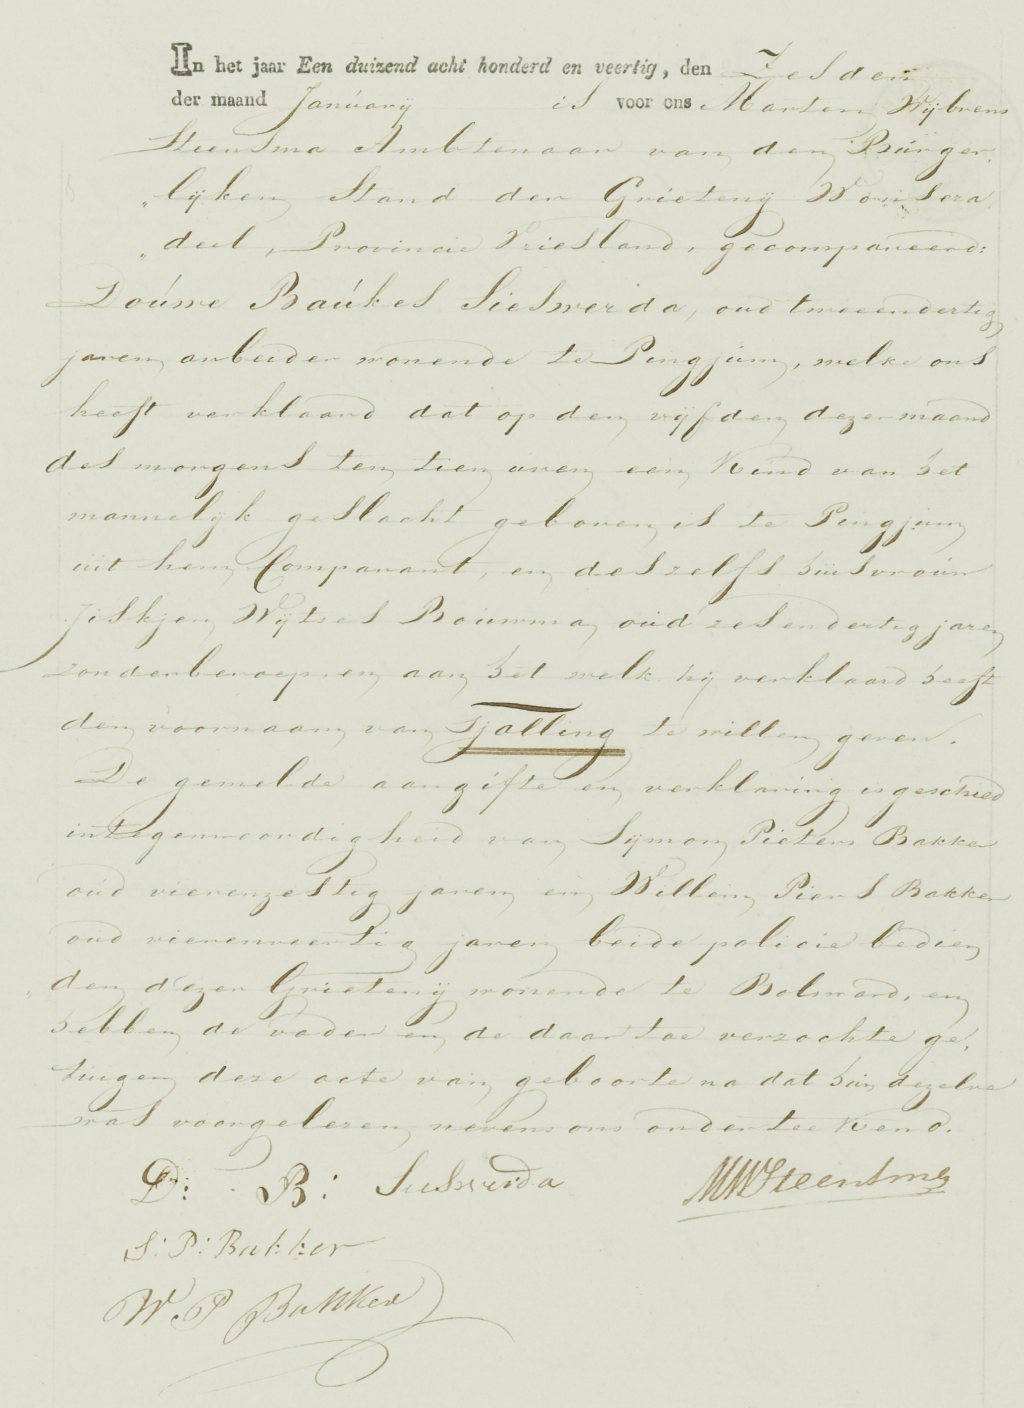 In het jaar Een duizend acht honderd en veertig, den Zesden
der maand Januarij is voor ons Marten Wijbrens
Steensma Ambtenaar van den Burger,
„lijken Stand der Grietenij Wonsera,
„deel, Provincie Vriesland, gecompareerd:
Douwe Baukes Sieswerda, oud tweeendertig
jaren arbeider wonende te Pingjum, welke ons
heeft verklaard dat op den vijfden dezer maand
des morgens ten tien uren een Kind van het
mannelijk geslacht geboren is te Pingjum
uit hem Comparant, en deszelfs huisvrouw
Jiskjen Wijtses Bouwma oud zesendertig jaren
zonderberoep en aan het welk hij verklaard heeft
den voornaam van Tjalling te willen geven.
De gemelde aangifte en verklaring is geschied
integenwoordigheid van Sijmon Pieters Bakker
oud vierenzestig jaren en Willem Piers Bakker
oud vierenveertig jaren beide policie bedien
„den dezer Grietenij wonende te Bolsward, en
hebben de vader en de daar toe verzochte ge,
tuigen deze acte van geboorte na dat hun dezelve
was voorgelezen nevens ons onderteekend.
D: B: Sieswerda MWSteensma
S: P: Bakker
W. P Bakker